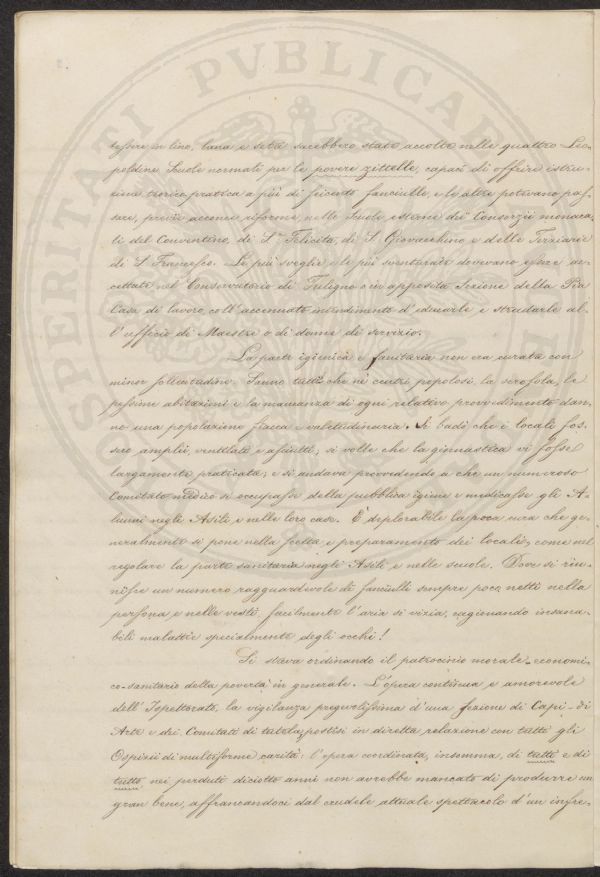 tessere in lino, lana e seta sarebbero state accolte nelle quattro Leo-
poldine Scuole normali per le povere zittelle, capaci di offrire istru-
zione teorica pratica a più di seicento fanciulle, e le altre potevano pas-
sare, previe acconcie riforme, nelle Scuole esterne dei Consorzii monaca-
li del Conventino, di S. Felicita, di S. Giovacchino e delle Terziarie
di S. Francesco. Le più sveglie e le più sventurate dovevano essere ac-
cettate nel Conservatorio di Fuligno o in apposita Sezione della Pia
Casa di lavoro, coll'accennato intendimento d'educarle e istradarle al-
l'ufficio di Maestre o di donne di servizio.
La parte igienica e sanitaria non era curata con
minor sollecitudine. Sanno tutti che ne' centri popolosi la scrofola, le
pessime abitazioni e la mancanza di ogni relativo provvedimento dan-
no una popolazione fiacca e valetudinaria. Si badò che i locali fos-
sero amplii, ventilati e asciutti; si volle che la ginnastica vi fosse
largamente praticata; e si andava provvedendo a che un numeroso
Comitato medico si occupasse della pubblica igiene e medicasse gli A-
lunni negli Asili e nelle loro case. È deplorabile la poca cura che ge-
neralmente si pone nella scelta e preparamento dei locali, come nel
regolare la parte sanitaria negli Asili e nelle scuole. Dove si riu-
nisce un numero ragguardevole di fanciulli sempre poco netti nella
persona e nelle vesti facilmente l'aria si vizia, cagionando insana-
bili malattie specialmente degli occhi!
Si stava ordinando il patrocinio morale-economi-
co-sanitario della povertà in generale. L'opera continua e amorevole
dell'Ispettorato, la vigilanza pregevolissima d'una sezione di Capi-di
Arte e dei Comitati di tutela, postisi in diretta relazione con tutti gli
Ospizii di multiforme carità: l'opera coordinata, insomma, di tutti e di
tutto nei perduti diciotto anni non avrebbe mancato di produrre un
gran bene, affrancandoci dal crudele attuale spettacolo d'un infre-
SPERITATI PVBLICAE